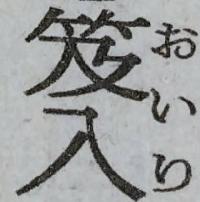 笈入
おいり